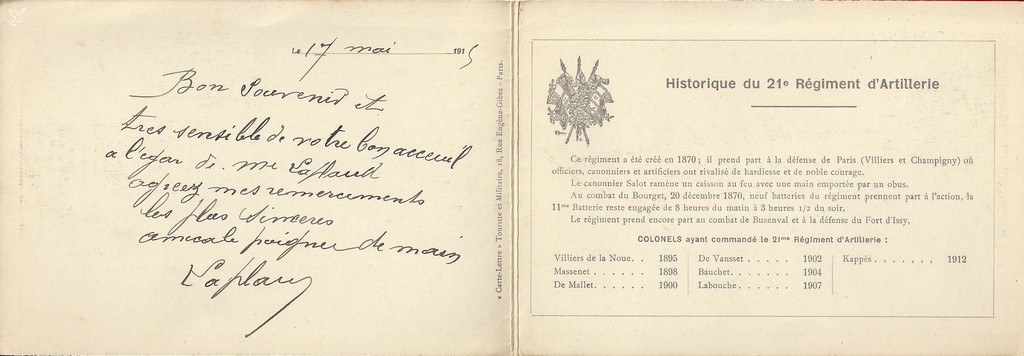 Le 17 mai 1915
Bon Souvenir et
tres sensible de votre bon acceuil
a l'égar de. me Laplaud
agréez mes remerciments
les plus Sinceres
amicale poignee de main
Laplau
« Carte-Lettre » Touriste et Militaire, 18, Rue Eugène-Gibez - Paris.
Historique du 21e Régiment d'Artillerie
Ce régiment a été créé en 1870; il prend part à la défense de Paris (Villiers et Champigny) où
officiers, canonniers et artificiers ont rivalisé de hardiesse et de noble courage.
Le canonnier Salot ramène un caisson au feu avec une main emportée par un obus.
Au combat du Bourget, 20 décembre 1870, neuf batteries du régiment prennent part à l'action, la
11me Batterie reste engagée de 8 heures du matin à 3 heures 1/2 du soir.
Le régiment prend encore part au combat de Buzenval et à la défense du Fort d'Issy,
COLONELS ayant commandé le 21me Régiment d'Artillerie :
Villiers de la Noue. . 1895
Massenet . . . . . . 1898
De Mallet. . . . . . 1900
De Vansset . . . . . 1902
Bauchet. . . . . . . 1904
Labouche . . . . . . 1907
Kappès . . . . . . . 1912